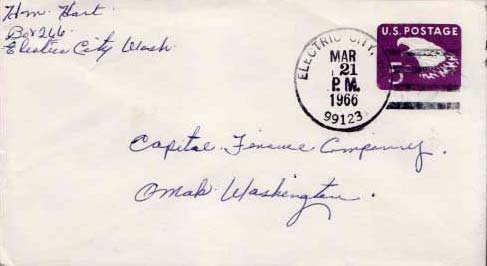 Hm. Hart
Box 266
Electric City Wash
ELECTRIC CITY,
MAR
21
P.M.
1966
99123
U.S. POSTAGE
5¢
Capital Finance Company.
Omak Washington.